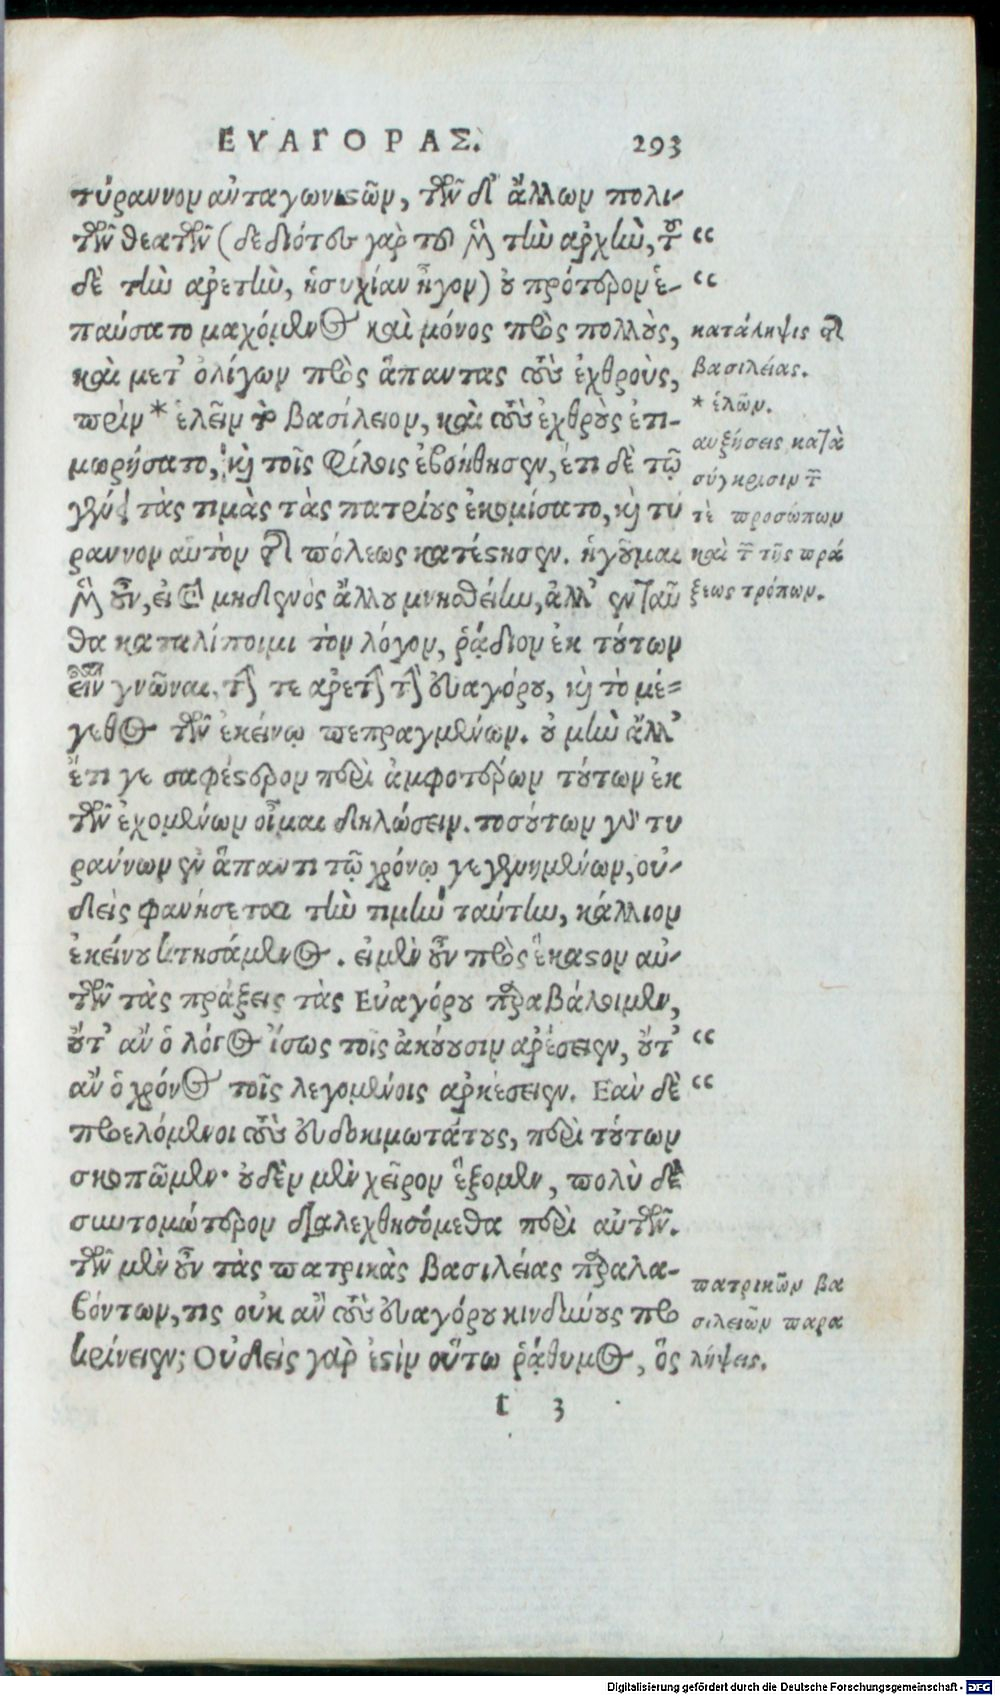 ΕΥΑΓΟΡΑΣ. 293
τύραννον ἀνταγωνιστῶν, τῶν δ' ἄλλων πολι-
τῶν θεατῶν (δεδιότες γὰρ τοῦ μὲν τὴν ἀρχὴν, τοῦ “
δὲ τὴν ἀρετὴν, ἡσυχίαν ἦγον) οὐ πρότερον ἐ- “
παύσατο μαχόμενος καὶ μόνος πρὸς πολλοὺς,
καὶ μετ' ὀλίγων πρὸς ἅπαντας τοὺς ἐχθροὺς,
πρὶν * ἑλεῖν τὸ βασίλειον, καὶ τοὺς ἐχθροὺς ἐτι-
μωρήσατο, καὶ τοῖς φίλοις ἐβοήθησεν, ἔτι δὲ τῷ
γένει τὰς τιμὰς τὰς πατρίους ἐκομίσατο, καὶ τύ
ραννον αὑτὸν τῆς πόλεως κατέστησεν. ἡγοῦμαι
μὲν οὖν, εἰ καὶ μηδενὸς ἄλλου μνησθείην, ἀλλ' ἐνταῦ
θα καταλίποιμι τὸν λόγον, ῥᾴδιον ἐκ τούτων
εἶναι γνῶναι τήν τε ἀρετὴν τὴν Εὐαγόρου, καὶ τὸ μέ-
γεθος τῶν ἐκείνῳ πεπραγμένων. οὐ μὴν ἀλλ'
ἔτι γε σαφέστερον περὶ ἀμφοτέρων τούτων ἐκ
τῶν ἐχομένων οἶμαι δηλώσειν. τοσούτων γὰρ τυ
ράννων ἐν ἅπαντι τῷ χρόνῳ γεγενημένων, οὐ-
δεὶς φανήσεται τὴν τιμὴν ταύτην, κάλλιον
ἐκείνου κτησάμενος. εἰ μὲν οὖν πρὸς ἕκαστον αὐ-
τῶν τὰς πράξεις τὰς Εὐαγόρου παραβάλοιμεν,
οὔτ' ἂν ὁ λόγος ἴσως τοῖς ἀκούουσιν ἀρέσειεν, οὔτ' “
ἂν ὁ χρόνος τοῖς λεγομένοις ἀρκέσειεν. Εὰν δὲ “
προελόμενοι τοὺς εὐδοκιμωτάτους, περὶ τούτων
σκοπῶμεν· οὐδὲν μὲν χεῖρον ἕξομεν, πολὺ δὲ
συντομώτερον διαλεχθησόμεθα περὶ αὐτῶν.
τῶν μὲν οὖν τὰς πατρικὰς βασιλείας παραλα-
βόντων, τίς οὐκ ἂν τοὺς Εὐαγόρου κινδύνους προ
κρίνειεν; Οὐδεὶς γάρ ἐστιν οὕτω ῥᾴθυμος, ὃς
t 3
κατάληψις τῆς
βασιλείας.
* ἑλῶν.
αὐξήσεις κατὰ
σύγκρισιν τῶν
τε προσώπων
καὶ τῶν τῆς πρά
ξεως τρόπων.
πατρικῶν βα
σιλειῶν παρα
λήψεις.
Digitalisierung gefördert durch die Deutsche Forschungsgemeinschaft - DFG